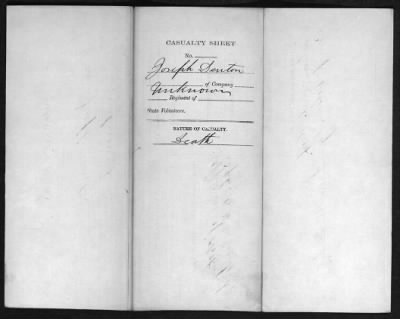 CASUALTY SHEET
No.
Joseph Denton
of Company
Unknown
Regiment of
State Volunteers.
NATURE OF CASUALTY.
Death